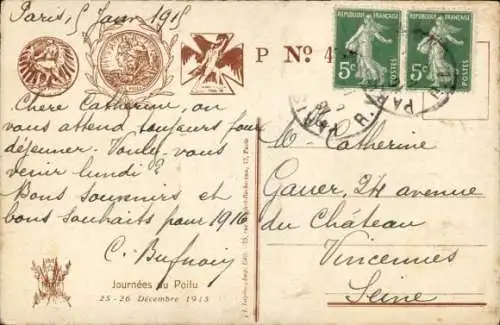 Paris, 5 Janv 1915
P No. 4
REPUBLIQUE FRANÇAISE
5c
POSTES
REPUBLIQUE FRANÇAISE
5c
POSTES
Chere Catherine, on
vous attend toujours pour
déjeuner. Voulez-vous
venir lundi?
Bons souvenirs et
bons souhaits pour 1916
C. Bufnoir
Journées du Poilu
25-26 Décembre 1915
Mlle Catherine
Gauer, 24 avenue
du Château
Vincennes
Seine